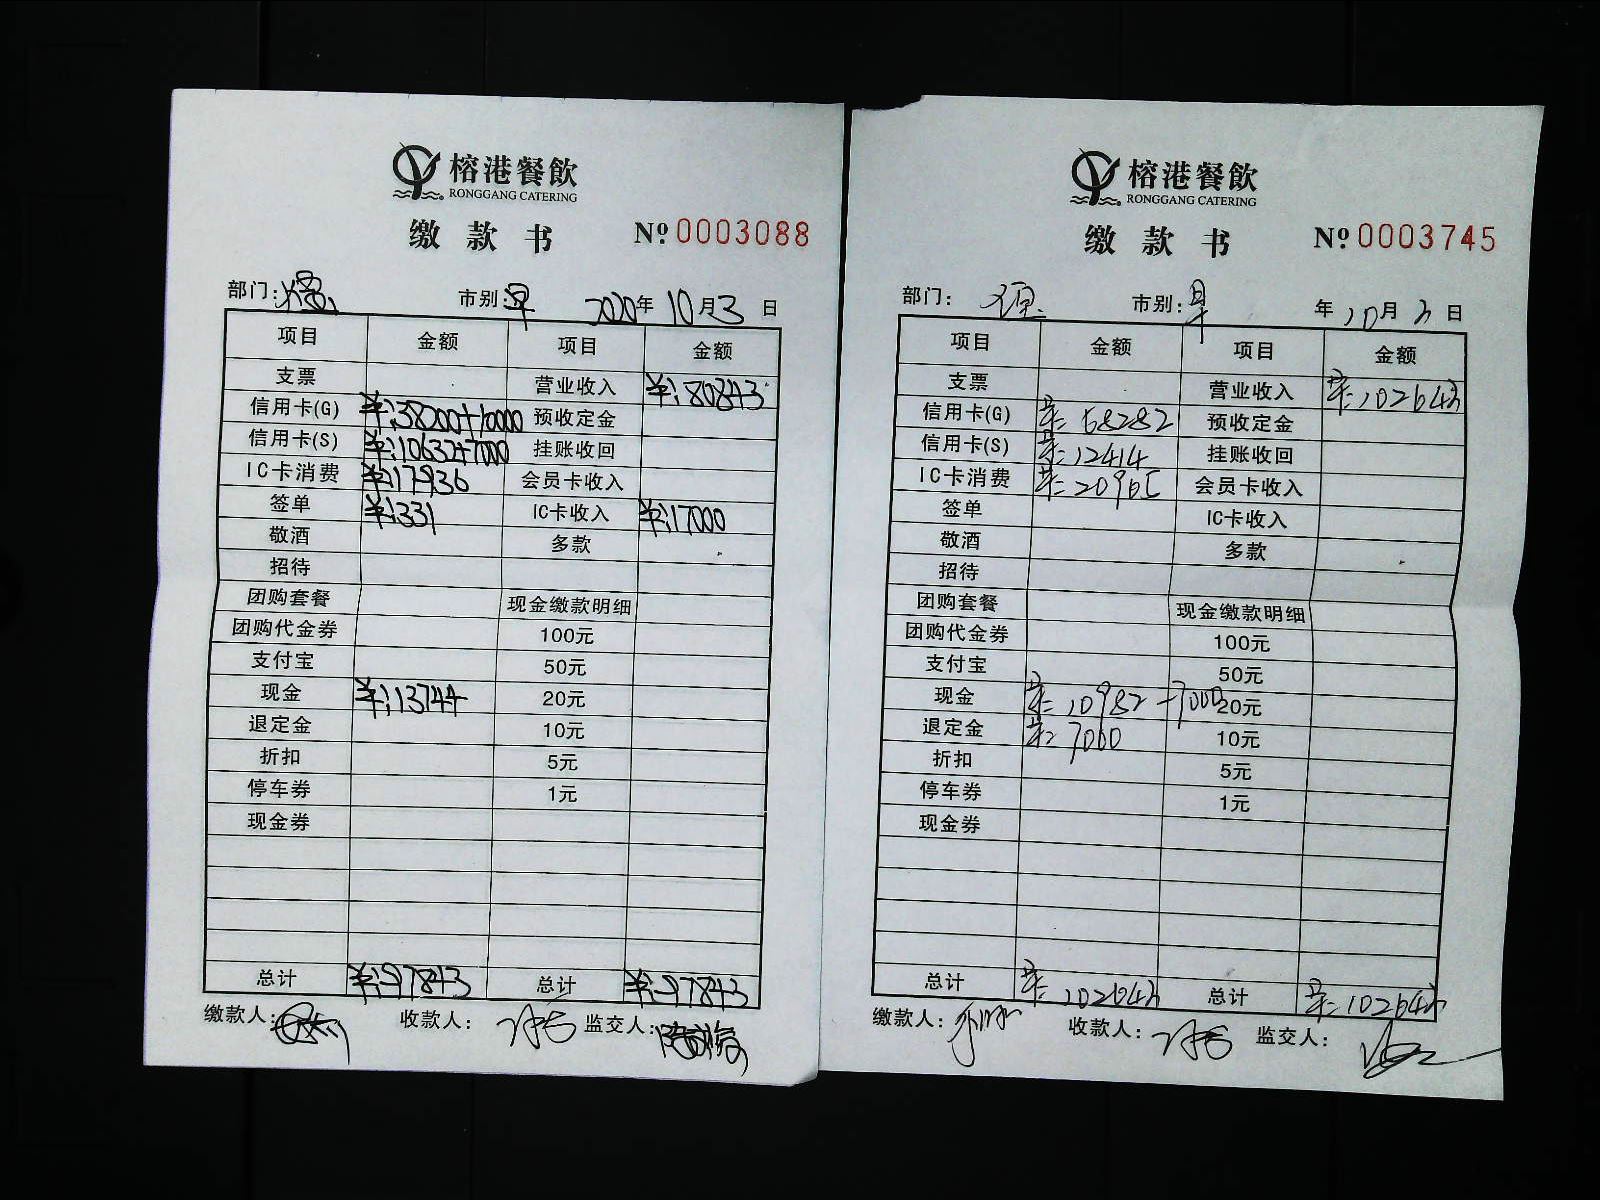 榕港餐飲
RONGGANG CATERING
缴款书
№ 0003088
部门: 市别: 早 2020年 10月 3日
项目 金额 项目 金额
支票 营业收入 ¥:80843
信用卡(G) ¥:38200+10000 预收定金
信用卡(S) ¥:10632+7000 挂账收回
IC卡消费 ¥:17936 会员卡收入
签单 ¥:331 IC卡收入 ¥:17000
敬酒 多款
招待
团购套餐 现金缴款明细
团购代金券 100元
支付宝 50元
现金 ¥:13744 20元
退定金 10元
折扣 5元
停车券 1元
现金券
总计 ¥:97843 总计 ¥:97843
缴款人: 收款人: 监交人:
榕港餐飲
RONGGANG CATERING
缴款书
№ 0003745
部门: 市别: 早 年 10月 3日
项目 金额 项目 金额
支票 营业收入 ¥:102643
信用卡(G) ¥:58282 预收定金
信用卡(S) ¥:12414 挂账收回
IC卡消费 ¥:20965 会员卡收入
签单 IC卡收入
敬酒 多款
招待
团购套餐 现金缴款明细
团购代金券 100元
支付宝 50元
现金 ¥:10982-7000 20元
退定金 ¥:7000 10元
折扣 5元
停车券 1元
现金券
总计 ¥:102643 总计 ¥:102643
缴款人: 收款人: 监交人: